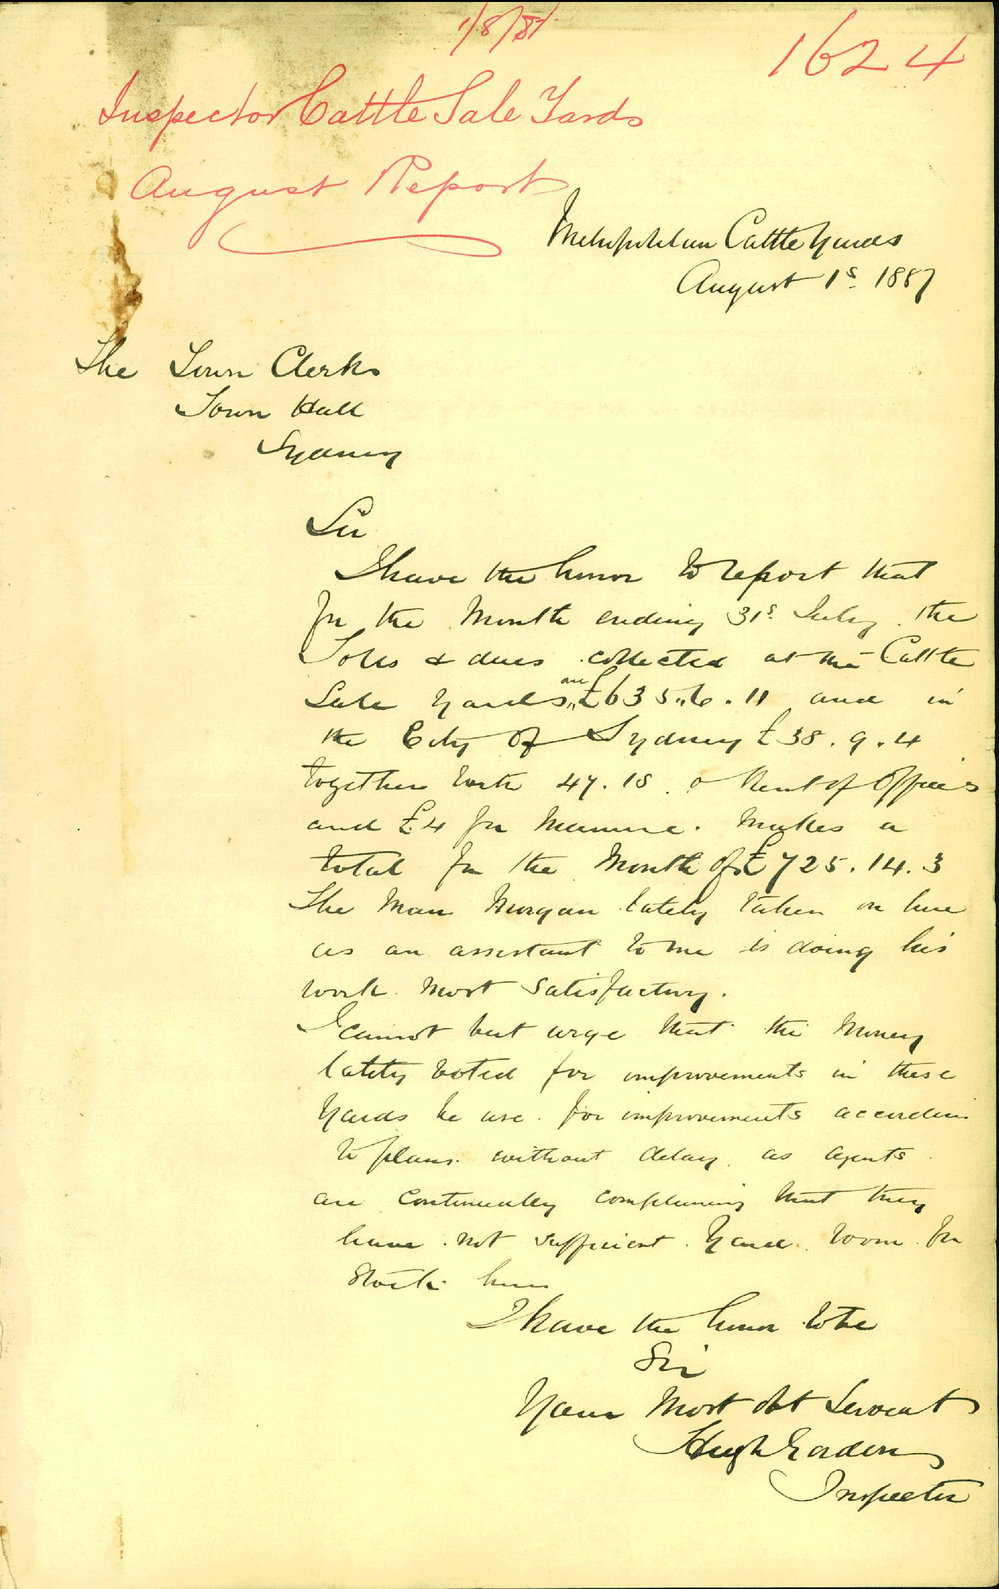 1/8/87
1624
Inspector Cattle Sale Yards
August Report
Metropolitan Cattle Yards
August 1s 1887
The Town Clerk
Town Hall
Sydney
Sir
I have the honor to report that
for the Month ending 31s July the
Tolls & dues collected at the Cattle
Sale Yards are £635.6.11 and in
the City of Sydney £38.9.4
together with 47.18.0 Rent of Offices
and £4 for Manure. Makes a
total for the Month of £725.14.3
The Man Morgan lately taken on here
as an assistant to me is doing his
work most satisfactory.
I cannot but urge that the Money
lately voted for improvements in these
Yards be use for improvements according
to plans without delay as agents
are continually complaining that they
have not sufficient Yard room for
Stock here
I have the honor to be
Sir
Your Most obt Servant
Hugh Gordon
Inspector